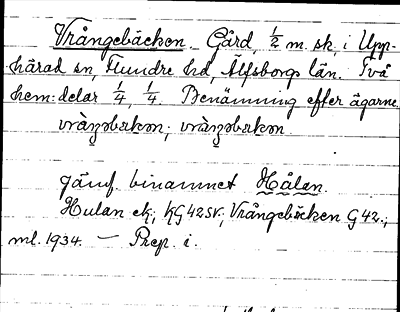 Vrångebäcken. Gård, 1/2 m. sk, i Upp-
härad sn, Flundre hd, Älfsborgs län. Två
hem: delar 1/4, 1/4. Benämning efter ägarne.
vràŋəbækən; vràŋəbækən.
Jämf. binamnet Hålan.
Hulan ek; KG42SK; Vrångebäcken G42.;
ml. 1934. — Prep. i.